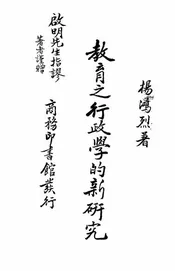 楊鴻烈著
教育之行政學的新研究
商務印書館發行
啟明先生指謬
著者謹贈